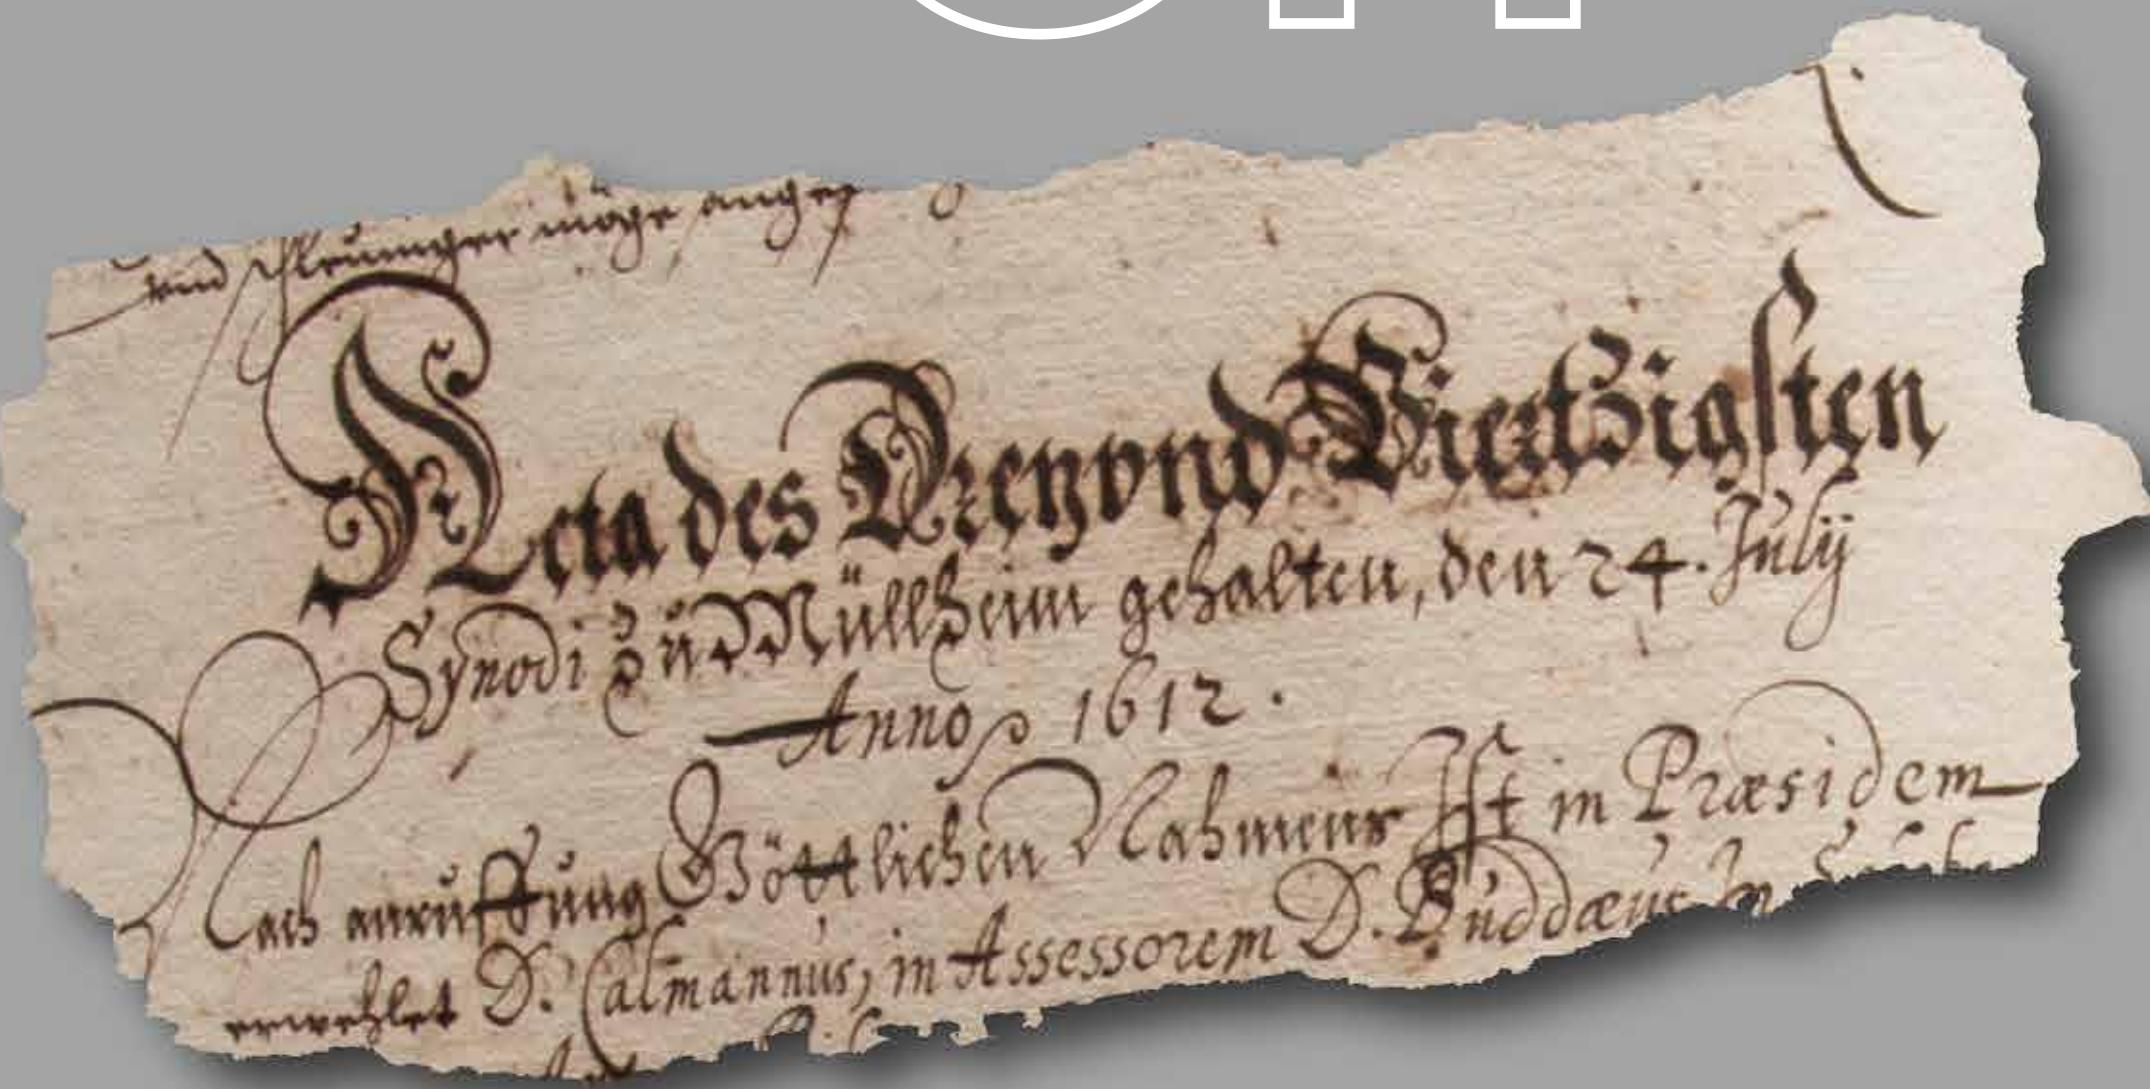 vnd schleuniger möge ange
Acta des Dreyvnd Viertzigsten
Synodi zu Müllheim gehalten, den 24. Julij
Anno 1612.
Nach anruffung Göttlichen Nahmens Ist in Præsidem
erwehlet D. Calmannus, in Assessorem D. Buddæus, In